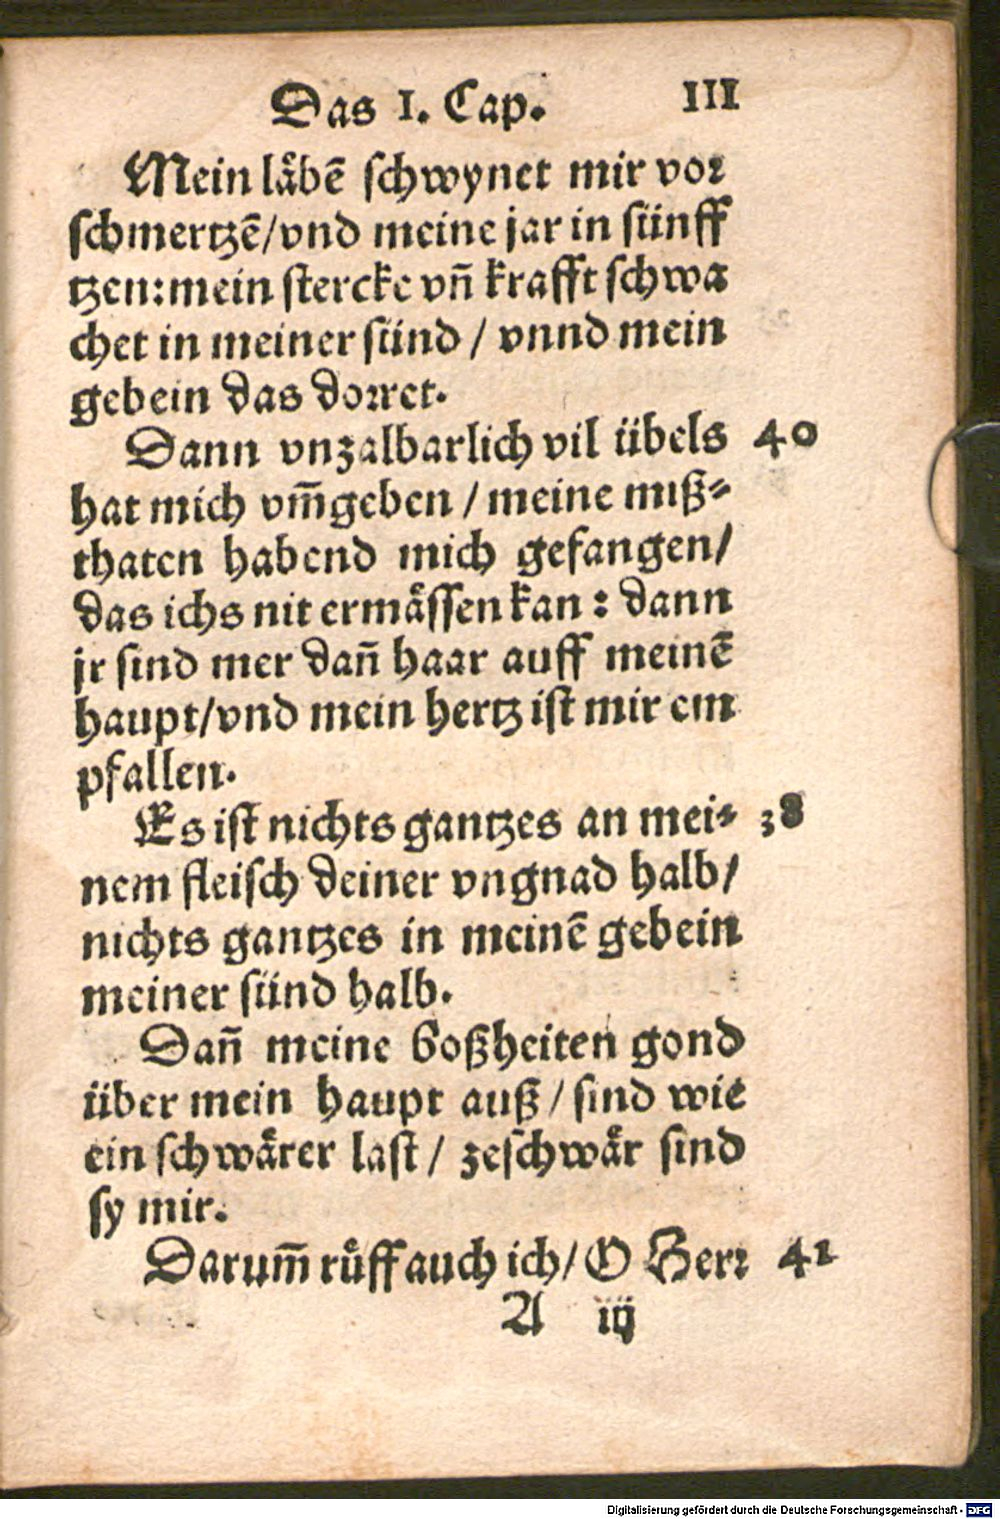 Das I. Cap. III
Mein låbē schwynet mir vor
schmertzē/vnd meine jar in sünff
tzen:mein stercke vñ krafft schwa
chet in meiner sünd / vnnd mein
gebein das dorret.
Dann vnzalbarlich vil übels 40
hat mich vm̃geben / meine miß⸗
thaten habend mich gefangen/
das ichs nit ermåssen kan : dann
jr sind mer dañ haar auff meinē
haupt/vnd mein hertz ist mir em
pfallen.
Es ist nichts gantzes an mei⸗ 38
nem fleisch deiner vngnad halb/
nichts gantzes in meinē gebein
meiner sünd halb.
Dañ meine boßheiten gond
über mein haupt auß / sind wie
ein schwårer last / zeschwår sind
sy mir.
Darum̃ růff auch ich/ O Herr 41
A iij
Digitalisierung gefördert durch die Deutsche Forschungsgemeinschaft - DFG